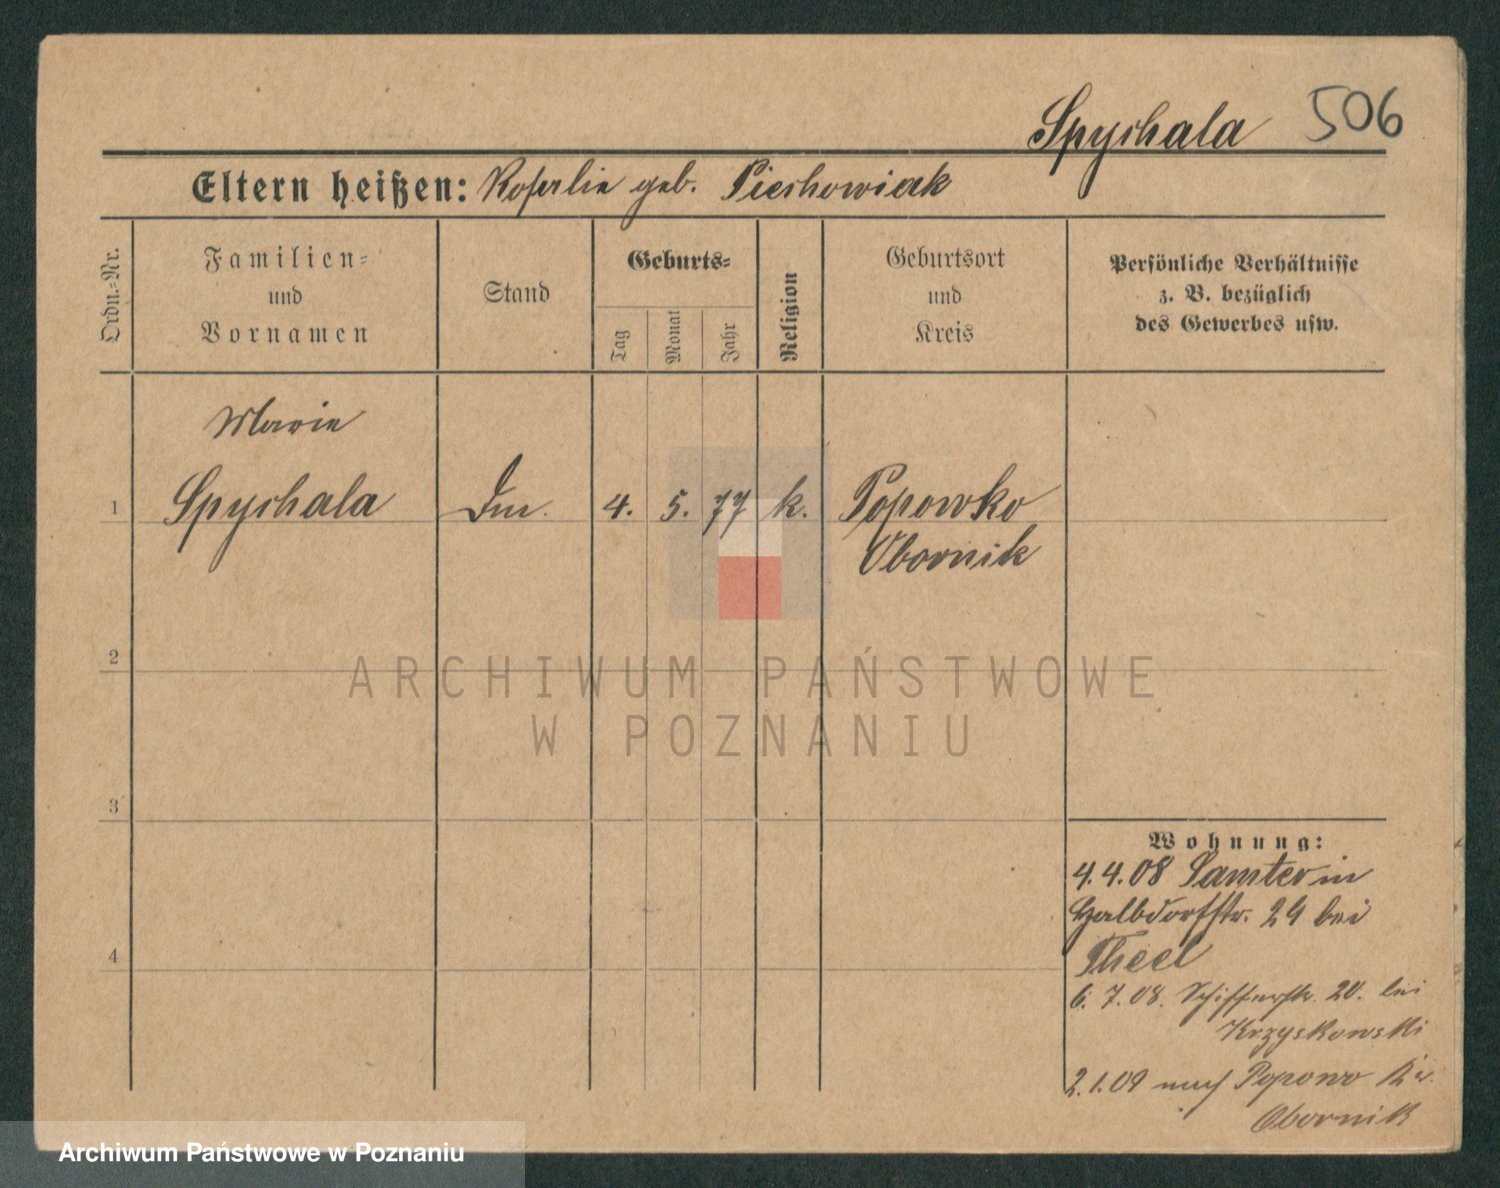 Spychala 506
Eltern heißen: Rosalie geb. Piechowiak
Ordn.-Nr.
Familien-
und
Vornamen
Stand
Geburts-
Tag
Monat
Jahr
Religion
Geburtsort
und
Kreis
Persönliche Verhältnisse
z. B. bezüglich
des Gewerbes usw.
Marie
1 Spychala 4. 5. 77 k. Popowko
Obornik
2
3
4
Wohnung:
4.4.08 Samter in
Halbdorfstr. 29 bei
Theel
6.7.08. Schifferstr. 20. bei
Krzyskowski
2.1.09 nach Popowo Kr.
Obornik
ARCHIWUM PAŃSTWOWE
W POZNANIU
Archiwum Państwowe w Poznaniu